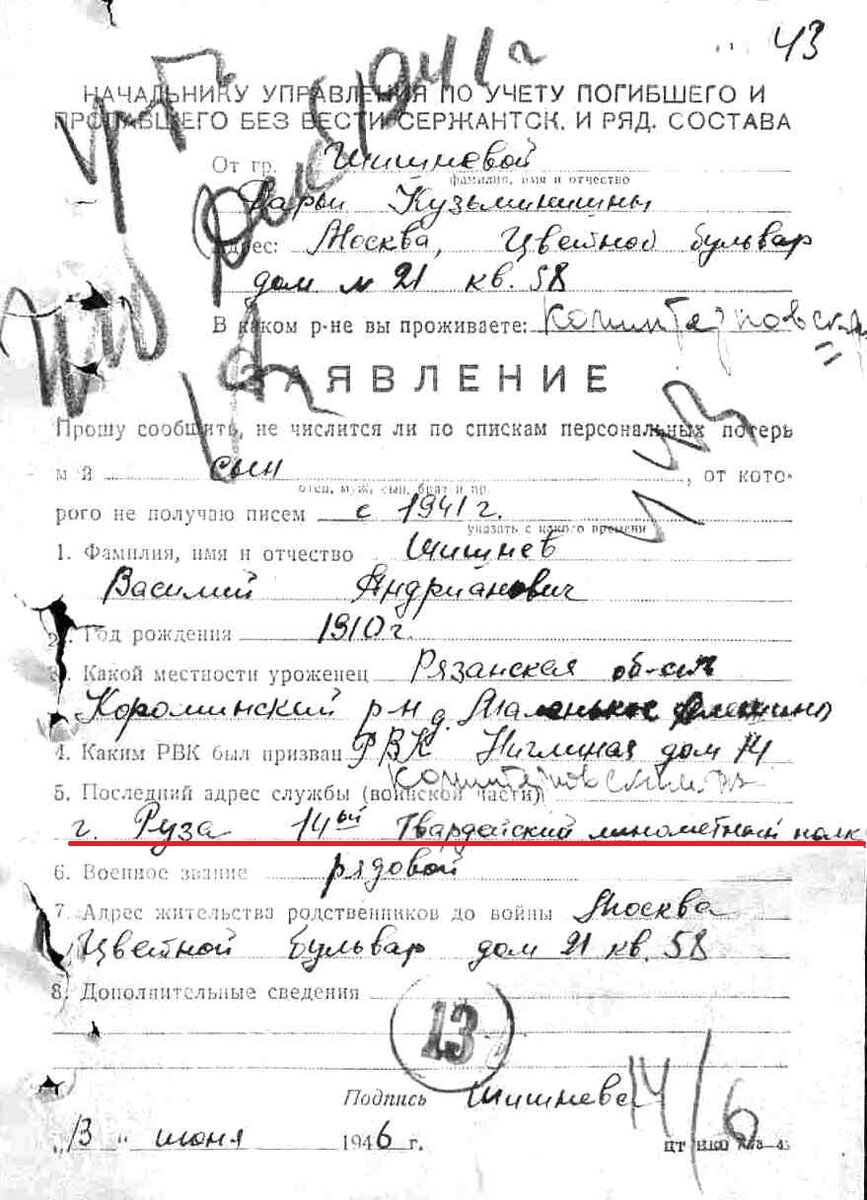 43
1941 г
НАЧАЛЬНИКУ УПРАВЛЕНИЯ ПО УЧЕТУ ПОГИБШЕГО И
ПРОПАВШЕГО БЕЗ ВЕСТИ СЕРЖАНТСК. И РЯД. СОСТАВА
От гр. Шишневой
фамилия, имя и отчество
Дарьи Кузьминишны
Адрес: Москва, Цветной бульвар
дом № 21 кв. 58
В каком р-не вы проживаете: Коминтерновск
ЗАЯВЛЕНИЕ
Прошу сообщить, не числится ли по спискам персональных потерь
м й сын, от кото-
отец, муж, сын, брат и пр.
рого не получаю писем с 1941 г.
указать с какого времени
1. Фамилия, имя и отчество Шишнев
Василий Андрианович
2. Год рождения 1910 г.
3. Какой местности уроженец Рязанская об-сть
р-н д.
4. Каким РВК был призван РВК Ниглиная дом 14
5. Последний адрес службы (воинской части)
г. Руза 14ый Гвардейский минометный полк
6. Военное звание рядовой
7. Адрес жительства родственников до войны Москва
Цветной Бульвар дом 21 кв. 58
8. Дополнительные сведения
13
Подпись Шишнева
14/6
„13 " июня 1946 г.